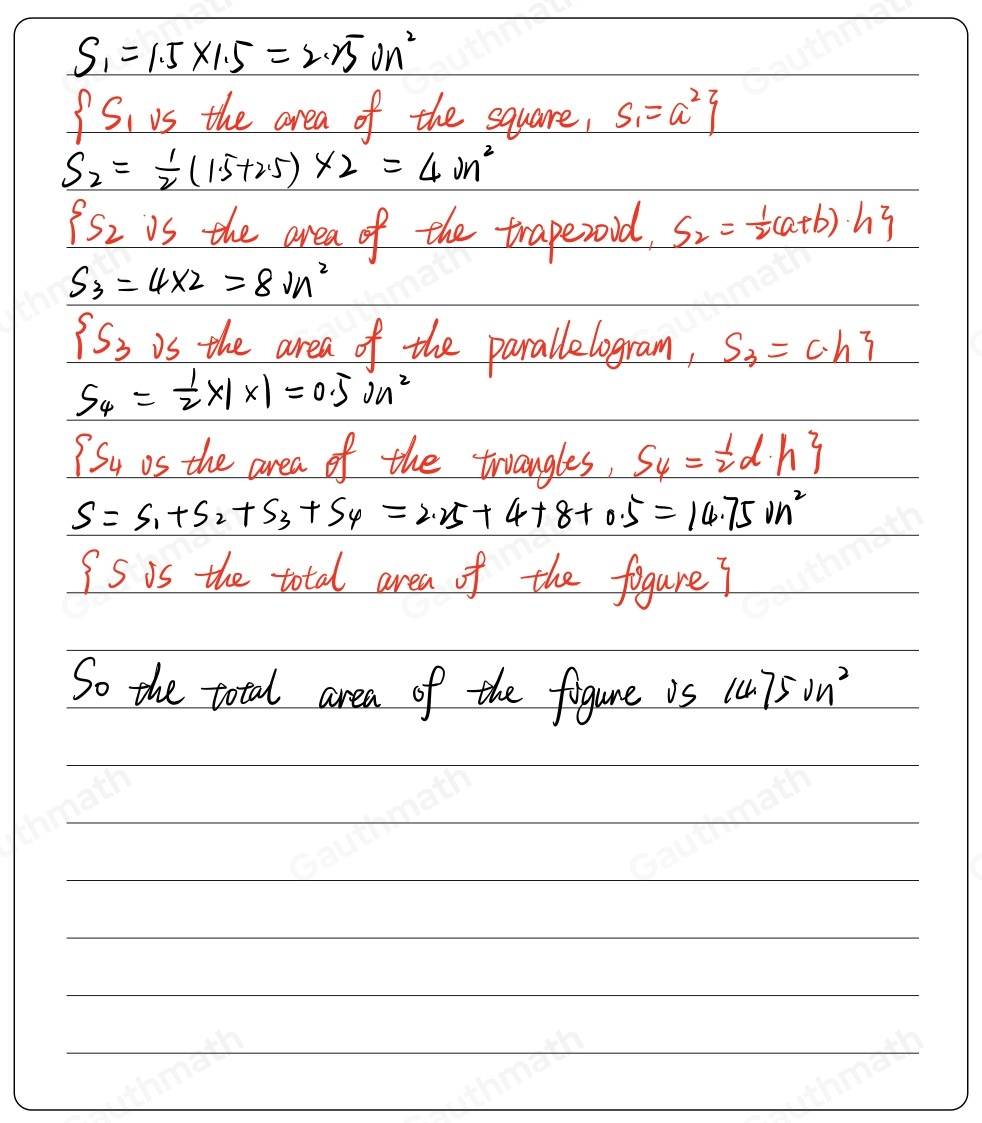 S₁ = 1.5 × 1.5 = 2.25 in²
{S₁ is the area of the square, S₁ = a²}
S₂ = ½(1.5+2.5) × 2 = 4 in²
{S₂ is the area of the trapezoid, S₂ = ½(a+b)·h}
S₃ = 4×2 = 8 in²
{S₃ is the area of the parallelogram, S₃ = c·h}
S₄ = ½ × 1 × 1 = 0.5 in²
{S₄ is the area of the triangles, S₄ = ½d·h}
S = S₁ + S₂ + S₃ + S₄ = 2.25 + 4 + 8 + 0.5 = 14.75 in²
{S is the total area of the figure}
So the total area of the figure is 14.75 in²